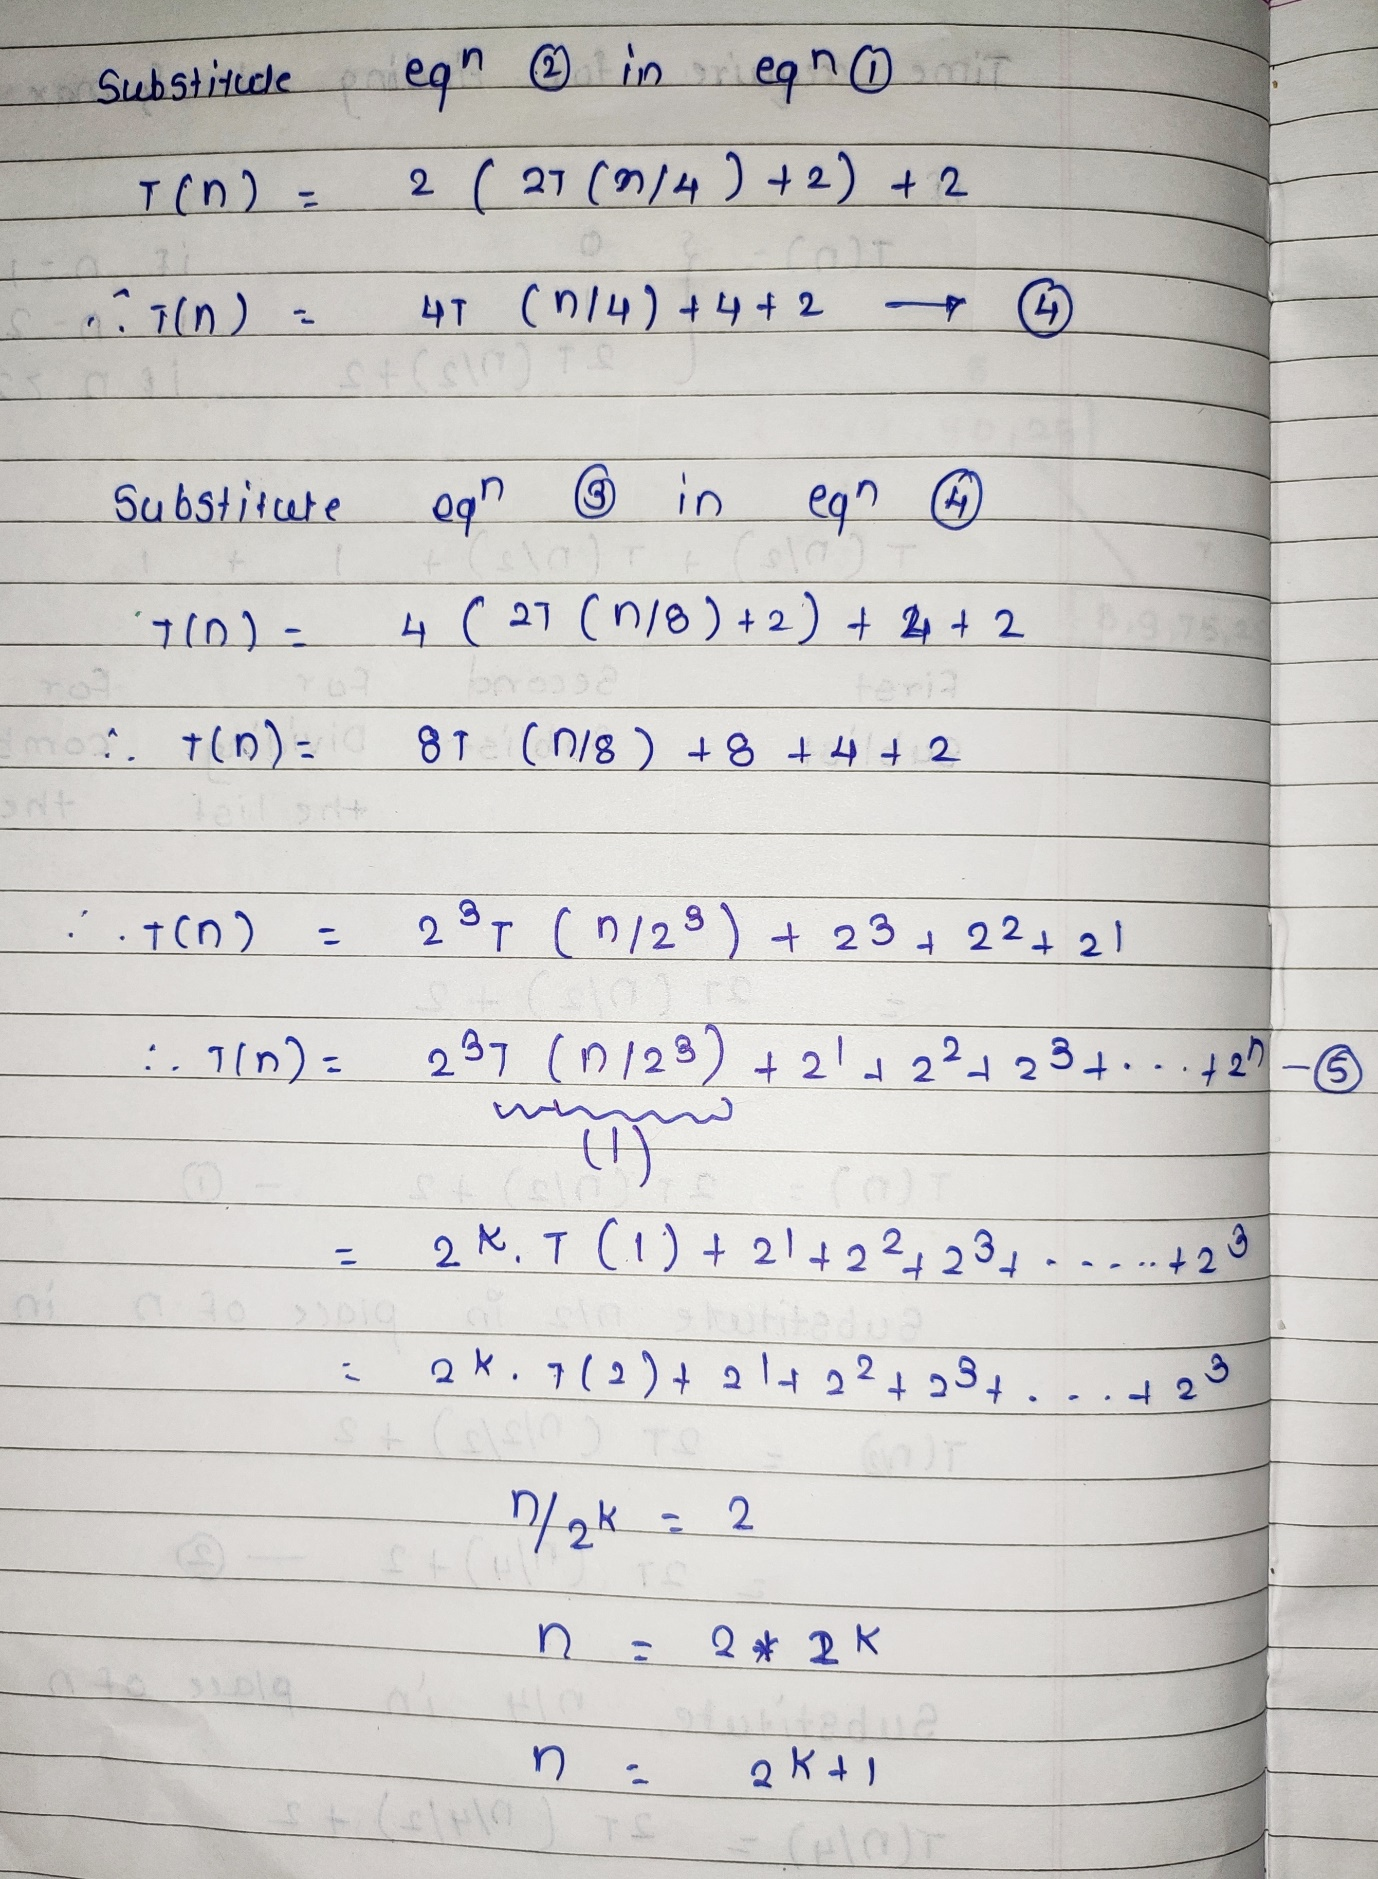 Substitude eqn ② in eqn ①
T(n) = 2 ( 2T (n/4) +2) + 2
∴ T(n) = 4T (n/4) + 4 + 2 → ④
Substitute eqn ③ in eqn ④
T(n) = 4 ( 2T (n/8) +2) + 4 + 2
∴ T(n) = 8T (n/8) + 8 + 4 + 2
∴ T(n) = 2³T (n/2³) + 2³ + 2² + 2¹
∴ T(n) = 2³T (n/2³) + 2¹ + 2² + 2³ + ... + 2ⁿ - ⑤
(1)
= 2ᴷ. T (1) + 2¹ + 2² + 2³ + ...... + 2³
= 2ᴷ. T(2) + 2¹ + 2² + 2³ + .... + 2³
n/2ᴷ = 2
n = 2 * 2ᴷ
n = 2ᴷ⁺¹